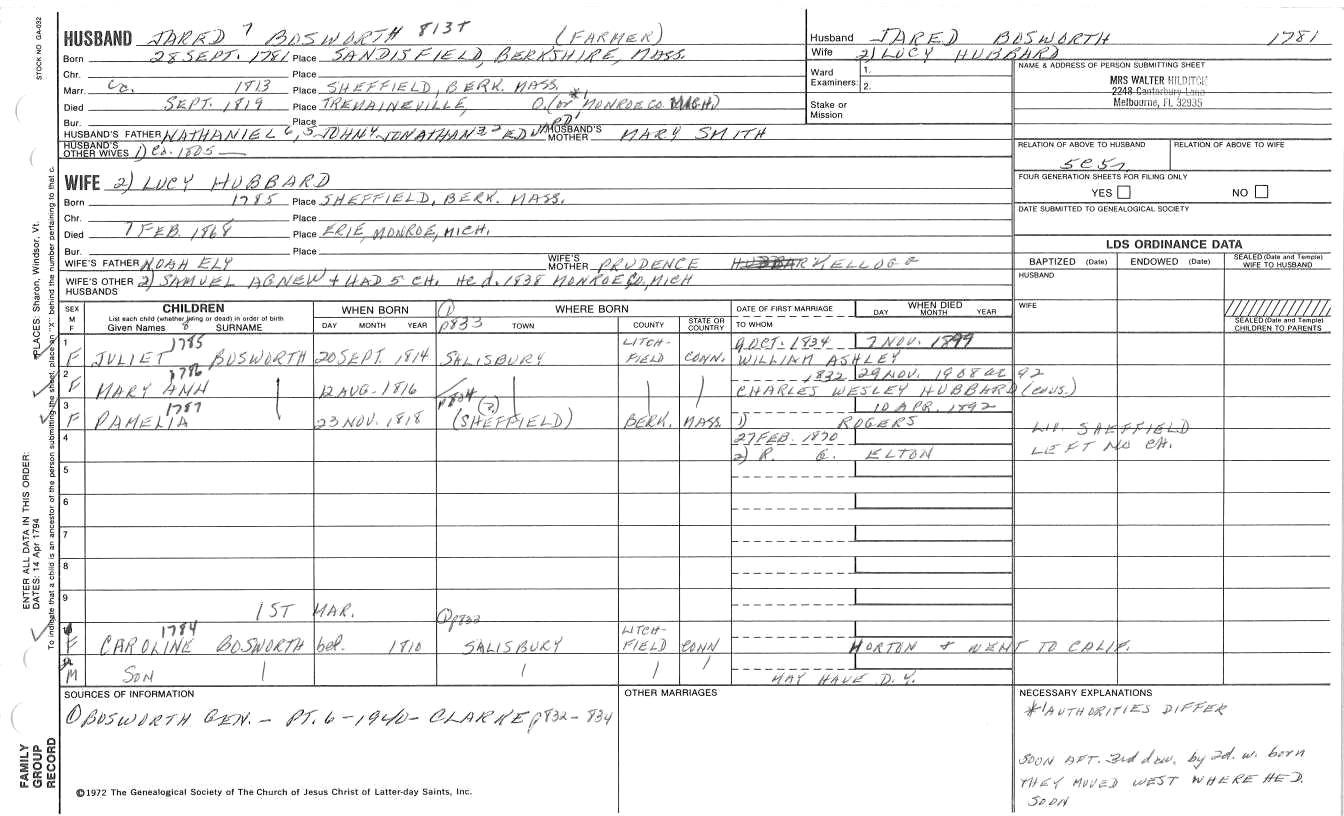 STOCK NO. GA-032
HUSBAND JARED 7 BOSWORTH 813T (FARMER)
Born 28 SEPT. 1781 Place SANDISFIELD, BERKSHIRE, MASS.
Chr. Place
Marr. Ca. 1813 Place SHEFFIELD, BERK. MASS.
Died SEPT. 1819 Place TREMAINEVILLE, O. (or *1 MONROE CO. MICH)
Bur. Place
HUSBAND'S FATHER NATHANIEL 6, 5 JOHN 4, JONATHAN 3 2 EDWARD 1 HUSBAND'S MOTHER MARY SMITH
HUSBAND'S OTHER WIVES 1) Ca. 1805 —
WIFE 2) LUCY HUBBARD
Born 1785 Place SHEFFIELD, BERK. MASS.
Chr. Place
Died 7 FEB. 1868 Place ERIE, MONROE, MICH.
Bur. Place
WIFE'S FATHER NOAH ELY WIFE'S MOTHER PRUDENCE KELLOGG
WIFE'S OTHER HUSBANDS 2) SAMUEL AGNEW + HAD 5 CH. HE d. 1838 MONROE CO, MICH
Husband JARED BOSWORTH 1781
Wife 2) LUCY HUBBARD
Ward Examiners: 1.
2.
Stake or Mission
NAME & ADDRESS OF PERSON SUBMITTING SHEET
MRS WALTER HILDITCH
2248 Canterbury Lane
Melbourne, FL 32935
RELATION OF ABOVE TO HUSBAND RELATION OF ABOVE TO WIFE
5C5r
FOUR GENERATION SHEETS FOR FILING ONLY
YES NO
DATE SUBMITTED TO GENEALOGICAL SOCIETY
LDS ORDINANCE DATA
BAPTIZED (Date) ENDOWED (Date) SEALED (Date and Temple) WIFE TO HUSBAND
HUSBAND
WIFE
SEALED (Date and Temple) CHILDREN TO PARENTS
SEX M F
CHILDREN
List each child (whether living or dead) in order of birth
Given Names 8 SURNAME
WHEN BORN
DAY MONTH YEAR
① p833
WHERE BORN
TOWN COUNTY STATE OR COUNTRY
DATE OF FIRST MARRIAGE
TO WHOM
WHEN DIED
DAY MONTH YEAR
1 1785 LITCH- 9 OCT. 1834 7 NOV. 1899
F JULIET BOSWORTH 20 SEPT. 1814 SALISBURY FIELD CONN. WILLIAM ASHLEY
2 1786 1832 29 NOV. 1908 ae 92
F MARY ANN 12 AUG. 1816 CHARLES WESLEY HUBBARD (cous.)
3 1787 p834 (?) 10 APR. 1892
F PAMELIA 23 NOV. 1818 (SHEFFIELD) BERK. MASS. 1) ROGERS LIV. SHEFFIELD
4 27 FEB. 1870 LEFT NO CH.
2) R. G. ELTON
5
6
7
8
9
1ST MAR. ① p832
1784 LITCH-
F CAROLINE BOSWORTH bef. 1810 SALISBURY FIELD CONN HORTON & WENT TO CALIF.
M SON MAY HAVE D. Y.
SOURCES OF INFORMATION
① BOSWORTH GEN. - PT. 6 - 1940 - CLARKE p832-834
OTHER MARRIAGES
NECESSARY EXPLANATIONS
*1 AUTHORITIES DIFFER
SOON AFT. 3rd dau. by 2d. w. born
THEY MOVED WEST WHERE HE D.
SOON
©1972 The Genealogical Society of The Church of Jesus Christ of Latter-day Saints, Inc.
FAMILY GROUP RECORD
ENTER ALL DATA IN THIS ORDER:
DATES: 14 Apr 1794
PLACES: Sharon, Windsor, Vt.
To indicate that a child is an ancestor of the person submitting the sheet, place an "X" behind the number pertaining to that c.